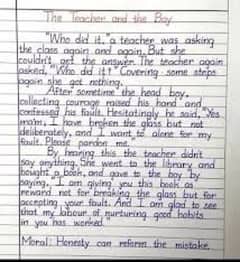 The Teacher and the Boy
"Who did it," a teacher was asking
the class again and again. But she
couldn't get the answer. The teacher again
asked, "Who did it?" Covering some steps
again she got nothing.
After sometime the head boy,
collecting courage raised his hand and
confessed his fault. Hesitatingly he said, "Yes
ma'm, I have broken the glass but not
deliberately, and I want to alone for my
fault. Please pardon me.
By hearing this the teacher didn't
say anything. She went to the library and
bought a book, and gave to the boy by
saying, "I am giving you this book as
reward not for breaking the glass but for
accepting your fault. And I am glad to see
that my labour of nurturing good habits
in you has worked."
Moral: Honesty can reform the mistake.